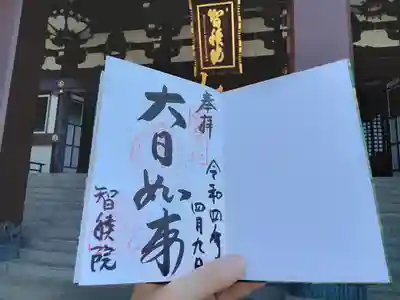 智積院
奉拝
令和四年
四月九日
大日如来
智積院